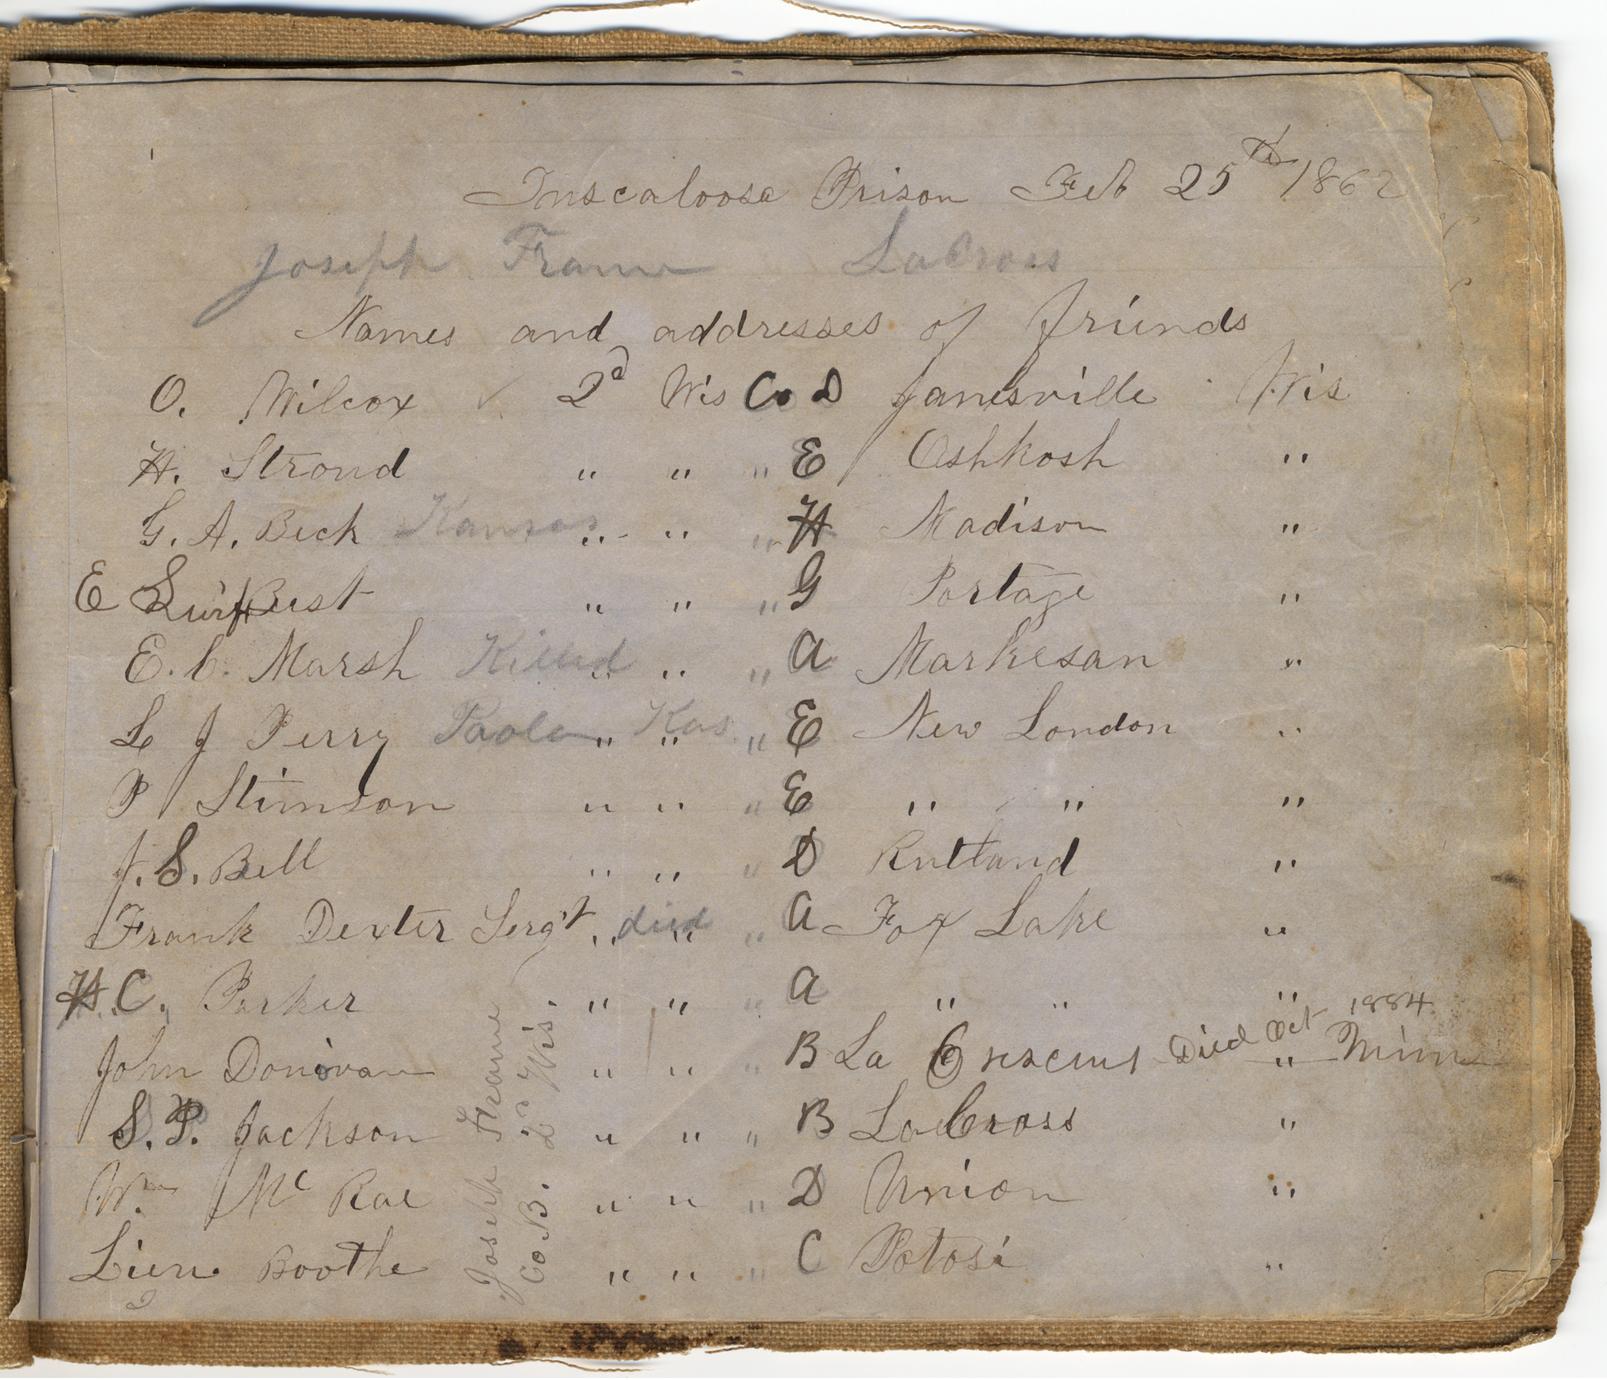 Tuscaloosa Prison Feb 25th 1862
Joseph Frame LaCross
Names and addresses of friends
O. Wilcox 2d Wis Co D Janesville Wis
H. Stroud " " " E Oshkosh "
G. A. Beck Kansas " " " H Madison "
E " " " G Portage "
E. C. Marsh Killed " " " A Markesan "
L J Perry Paola " Kas " " E New London "
P Stimson " " " E " " "
J. S. Bell " " " D Rutland "
Frank Dexter Serg't " died " " A Fox Lake "
H. C. Parker " " " A " " "
John Donivan " " " B La Crescent Died Oct 1884 " Minn
S. P. Jackson " " " B LaCross "
Wm McRae " " " D Union "
Lieu. Boothe " " " C Potosi "
2
Joseph Frame
Co B. 2d Wis.